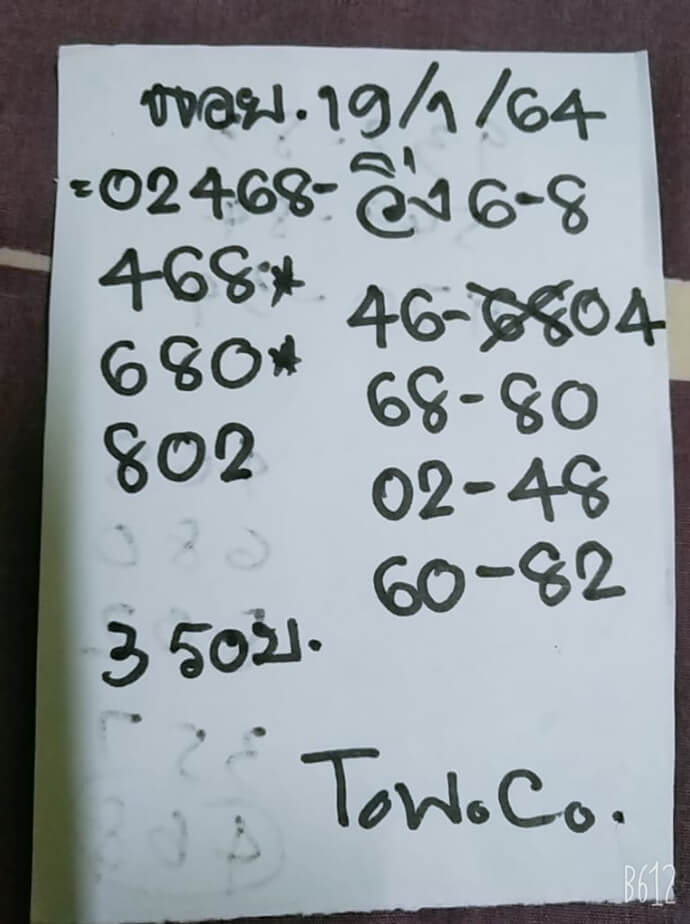 ฮอย. 19/1/64
=02468- วิ่ง 6-8
468*
680*
802
46-6804
68-80
02-48
60-82
3 รอบ.
ToWoCo.
B612